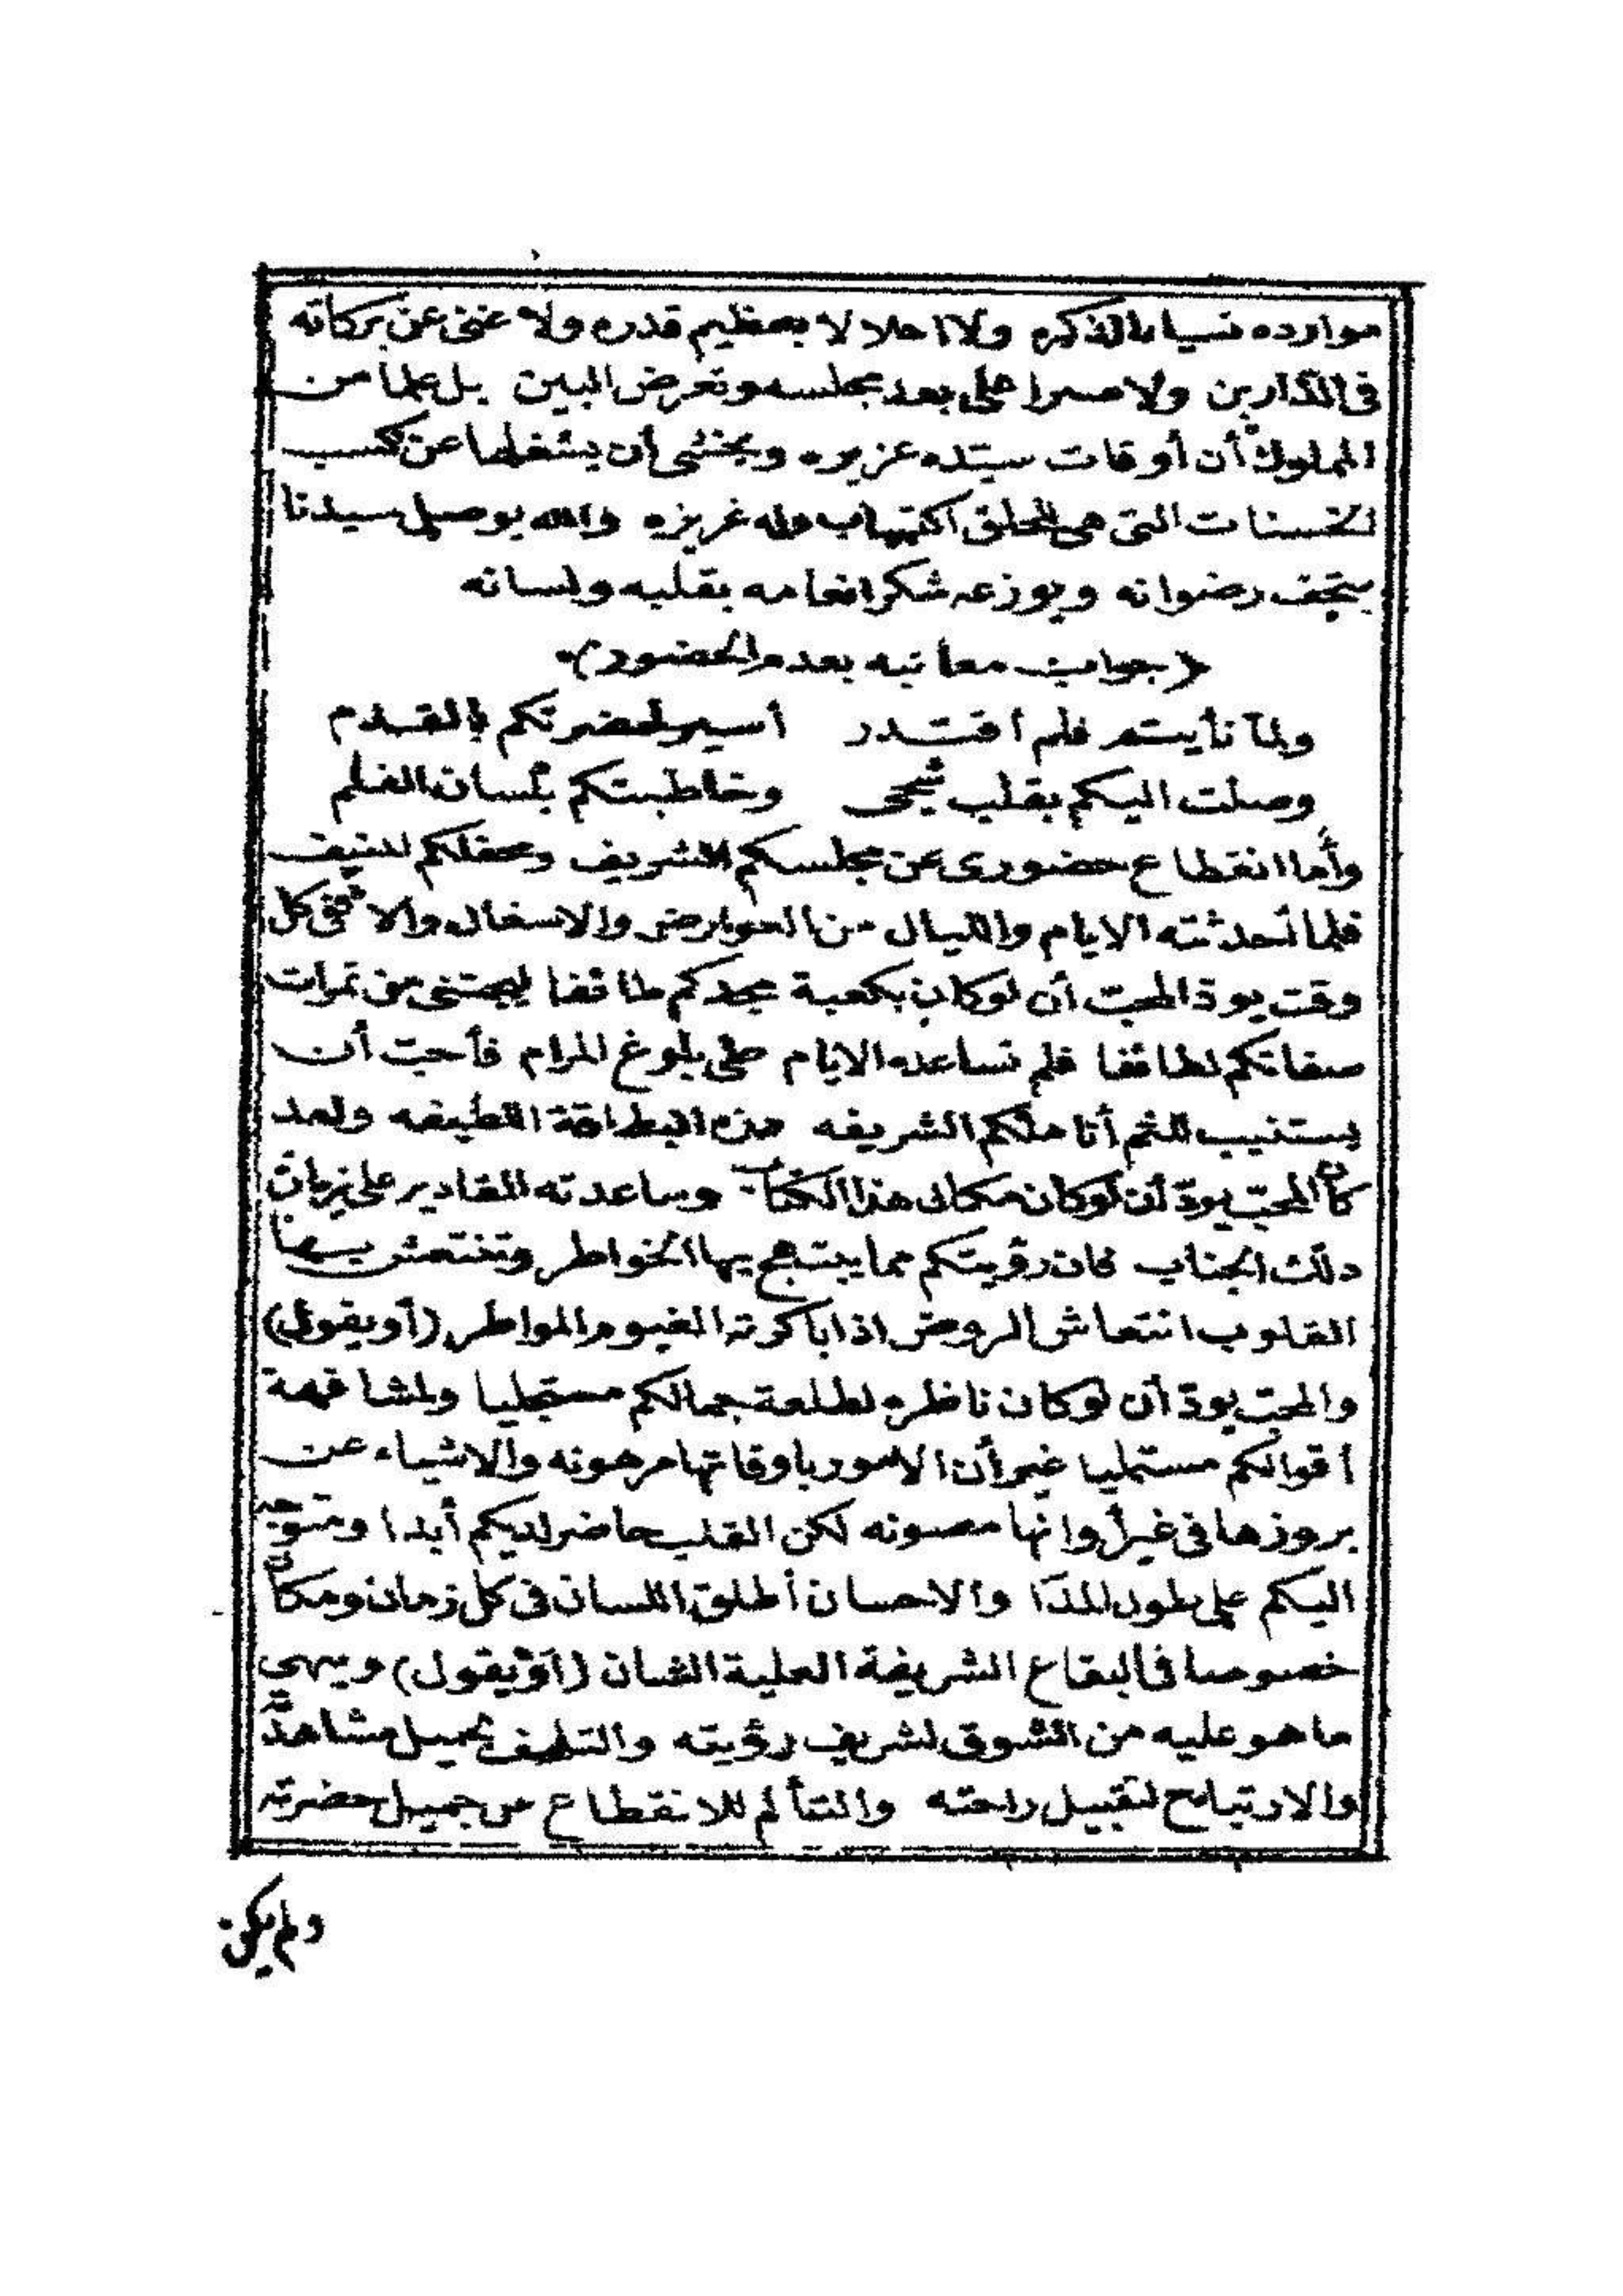 موارده نسيانا لذكره ولا اخلالا بعظيم قدره ولا غنى عن بركاته
فى الدارين ولا صبرا على بعد مجلسه وتعرض البين بل علما من
المملوك أن أوقات سيده عزيزه ويخشى أن يشغلها عن كسب
الحسنات التى هى للخلق اكتسابها وله غريزه والله يوصل سيدنا
بتحف رضوانه ويوزعه شكر انعامه بقلبه ولسانه
(جواب معاتبه بعدم الحضور)
ولما نأيتم فلم أقتدر أسير لحضرتكم بالقدم
وصلت اليكم بقلب شجى وخاطبتكم بلسان القلم
وأما انقطاع حضورى عن مجلسكم الشريف ومحفلكم المنيف
فلما أحدثته الايام والليال من العوارض والاشغال والا ففى كل
وقت يود المحب أن لو كان بكعبة مجدكم طائفا ليجتنى من ثمرات
صفاتكم لطائفا فلم تساعده الايام على بلوغ المرام فأحب أن
يستنيب للثم أناملكم الشريفه هذه البطاقة اللطيفه ولقد
كان المحب يود أن لو كان مكان هذا الكتاب وساعدته المقادير على زيارة
ذلك الجناب فان رؤيتكم مما يبتهج بها الخواطر وتنتعش بها
القلوب انتعاش الروض اذا باكرته الغيوم المواطر (أو يقول)
والمحب يود أن لو كان ناظره لطلعة جمالكم مستجليا ولمشافهة
أقوالكم مستمليا غير أن الامور باوقاتها مرهونه والاشياء عن
بروزها فى غير أوانها مصونه لكن القلب حاضر لديكم أبدا ومتوجه
اليكم على طول المدا والاحسان أطلق اللسان فى كل زمان ومكان
خصوصا فى البقاع الشريفة العلية الشان (أو يقول) وينهى
ما هو عليه من التشوق لشريف رؤيته والتلهف لجميل مشاهدته
والارتياح لتقبيل راحته والتألم للانقطاع عن جميل حضرته
ولم يكن